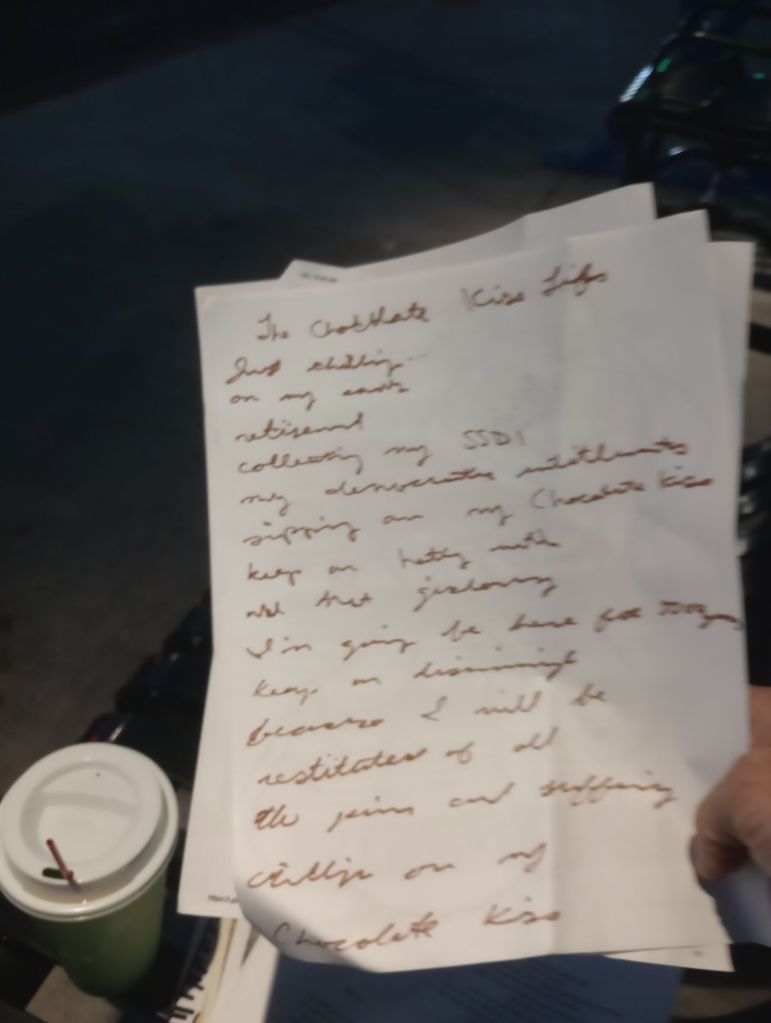 The Chocklate Kiss Life
Just chilling...
on my
retirement
collecting my SSDI
my democratic entitlements
sipping on my Chocolate Kiss
keep on hating
that jealousy
I'm going be here for 500 years
keep on
because I will be
restitutes of all
the pain and suffering
on my
Chocolate Kiss